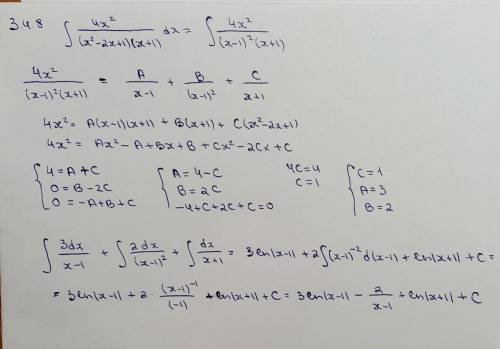 3.4.8 ∫ 4x²/((x²-2x+1)(x+1)) dx = ∫ 4x²/((x-1)²(x+1))
4x²/((x-1)²(x+1)) = A/(x-1) + B/(x-1)² + C/(x+1)
4x² = A(x-1)(x+1) + B(x+1) + C(x²-2x+1)
4x² = Ax² - A + Bx + B + Cx² - 2Cx + C
{ 4 = A + C { A = 4 - C 4C = 4 { C = 1
0 = B - 2C B = 2C C = 1 A = 3
0 = -A + B + C -4 + C + 2C + C = 0 B = 2
∫ 3dx/(x-1) + ∫ 2dx/(x-1)² + ∫ dx/(x+1) = 3ln|x-1| + 2∫(x-1)⁻² d(x-1) + ln|x+1| + C =
= 3ln|x-1| + 2 · (x-1)⁻¹/(-1) + ln|x+1| + C = 3ln|x-1| - 2/(x-1) + ln|x+1| + C